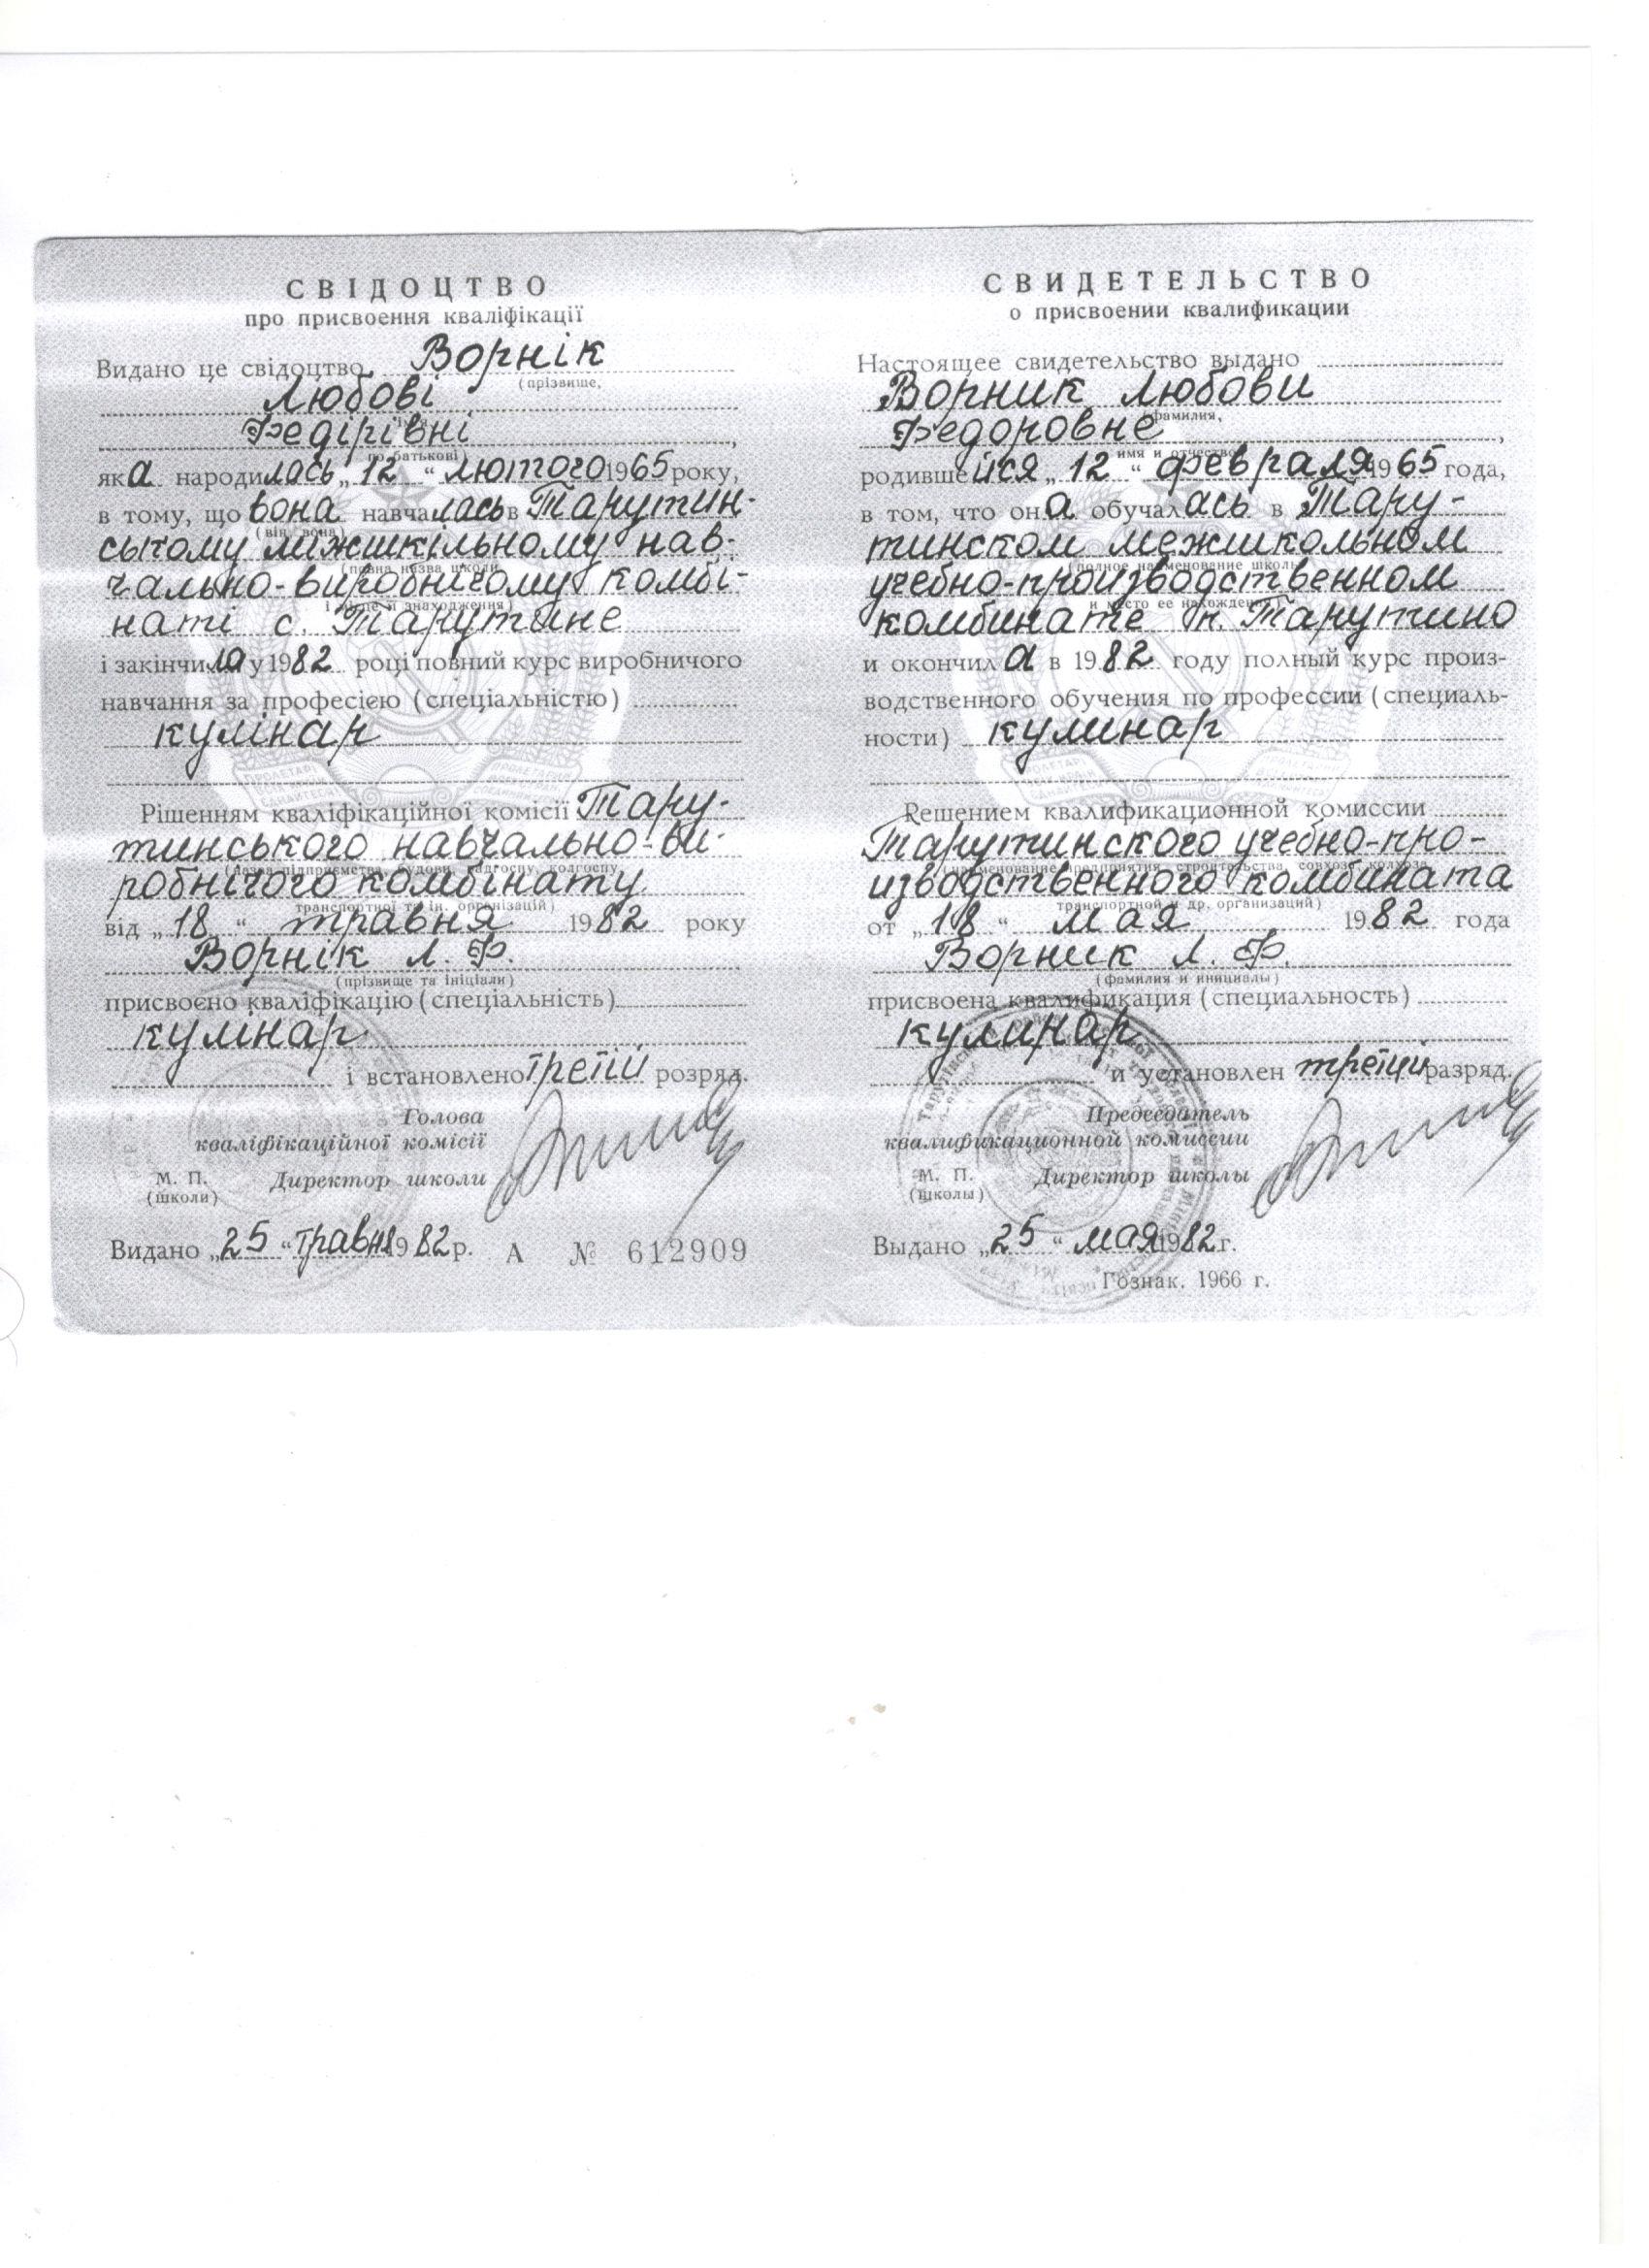 СВІДОЦТВО
про присвоення кваліфікації
Видано це свідоцтво Ворнік
(прізвище,
Любові
Федірівні
по батькові)
яка народилась „12“ лютого 1965 року,
в тому, що вона навчалась в Тарутин-
(він, вона)
ському міжшкільному нав-
(повна назва школи
чально-виробничому комбі-
і місце її знаходження)
наті с. Тарутине
і закінчила у 1982 році повний курс виробничого
навчання за професією (спеціальністю)
кулінар
Рішенням кваліфікаційної комісії Тару-
тинського навчально-ви-
(назва підприємства, будови, радгоспу, колгоспу,
робнічого комбінату
транспортної та ін. організацій)
від „18“ травня 1982 року
Ворнік Л. Ф.
(прізвище та ініціали)
присвоєно кваліфікацію (спеціальність)
кулінар
і встановлено третій розряд.
Голова
кваліфікаційної комісії
М. П.
(школи)
Директор школи
Видано „25“ травня 1982 р. А № 612909
СВИДЕТЕЛЬСТВО
о присвоении квалификации
Настоящее свидетельство выдано
Ворник Любови
(фамилия,
Федоровне
имя и отчество)
родившейся „12“ февраля 1965 года,
в том, что она обучалась в Тару-
тинском межшкольном
(полное наименование школы
учебно-производственном
и место ее нахождения)
комбинате п. Тарутино
и окончила в 1982 году полный курс произ-
водственного обучения по профессии (специаль-
ности) кулинар
Решением квалификационной комиссии
Тарутинского учебно-про-
(наименование предприятия, строительства, совхоза, колхоза,
изводственного комбината
транспортной и др. организаций)
от „18“ мая 1982 года
Ворник Л. Ф.
(фамилия и инициалы)
присвоена квалификация (специальность)
кулинар
и установлен третий разряд.
Председатель
квалификационной комиссии
М. П.
(школы)
Директор школы
Выдано „25“ мая 1982 г.
Гознак. 1966 г.